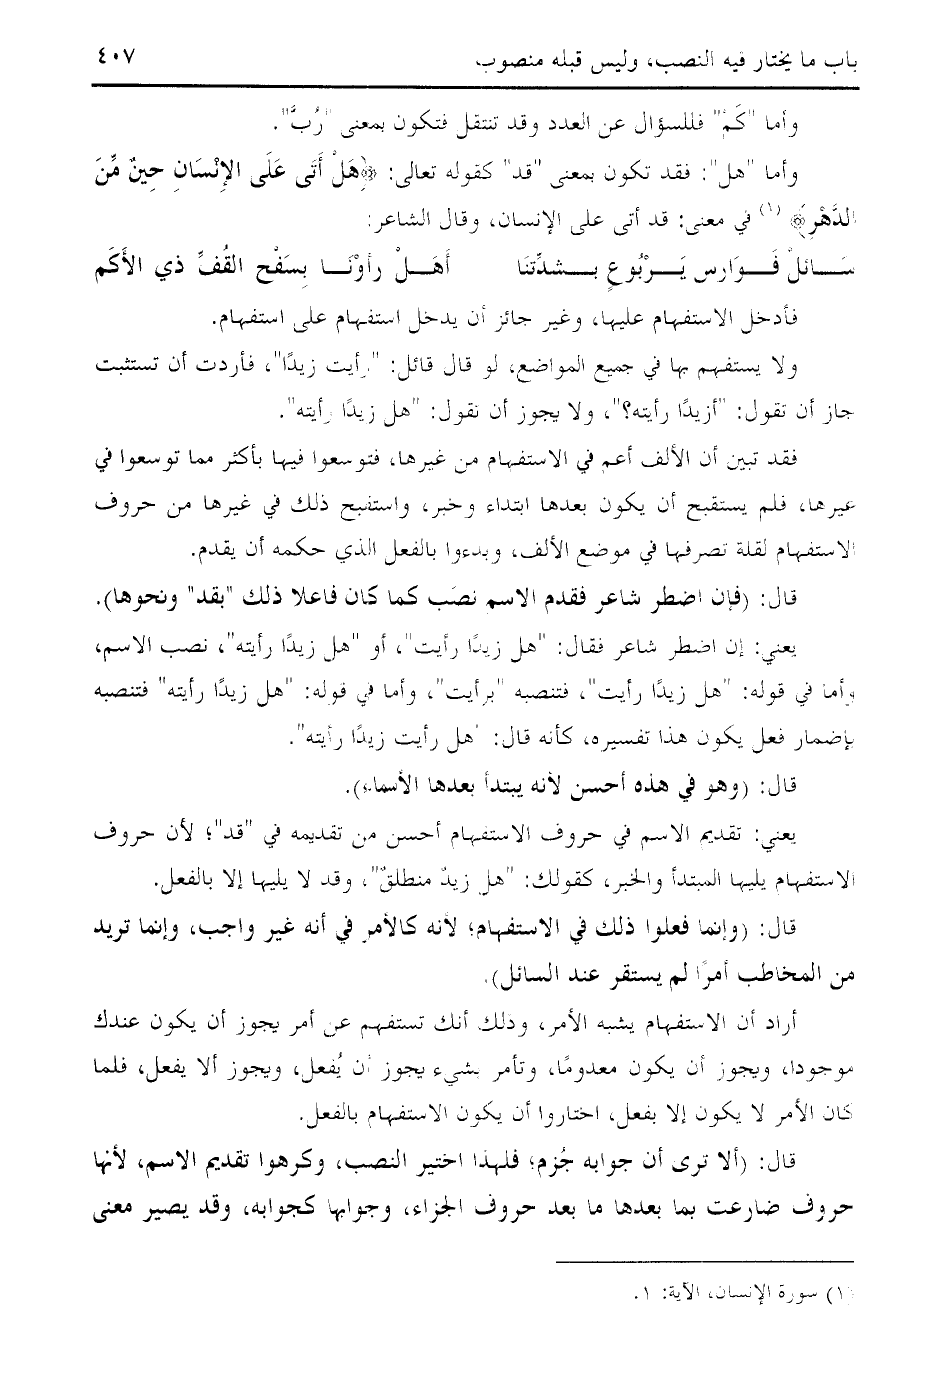 باب ما يختار فيه النصب، وليس قبله منصوب. ٤٠٧
وأما "كَمْ" فللسؤال عن العدد وقد تنتقل فتكون بمعنى "رُبَّ".
وأما "هل": فقد تكون بمعنى "قد" كقوله تعالى: ﴿هَلْ أَتَى عَلَى الإِنْسَانِ حِينٌ مِّنَ
الدَّهْرِ﴾ (١) في معنى: قد أتى على الإنسان، وقال الشاعر:
سَـــائلْ فَـــوَارس يَـــرْبُوعٍ بـــشدَّتنَا أَهَـــلْ رأوْنَـــا بِسَفْحِ القُفِّ ذي الأَكَم
فأدخل الاستفهام عليها، وغير جائز أن يدخل استفهام على استفهام.
ولا يستفهم بها في جميع المواضع، لو قال قائل: "رأيت زيدًا"، فأردت أن تستثبت
جاز أن تقول: "أزيدًا رأيته؟"، ولا يجوز أن نقول: "هل زيدًا رأيته".
فقد تبين أن الألف أعم في الاستفهام من غيرها، فتوسعوا فيها بأكثر مما توسعوا في
غيرها، فلم يستقبح أن يكون بعدها ابتداء وخبر، واستقبح ذلك في غيرها من حروف
الاستفهام لقلة تصرفها في موضع الألف، وبدءوا بالفعل الذي حكمه أن يقدم.
قال: (فإن اضطر شاعر فقدم الاسم نصَب كما كان فاعلا ذلك "بقد" ونحوها).
يعني: إن اضطر شاعر فقال: "هل زيدًا رأيت"، أو "هل زيدًا رأيته"، نصب الاسم،
وأما في قوله: "هل زيدًا رأيت"، فتنصبه "برأيت"، وأما في قوله: "هل زيدًا رأيته" فتنصبه
بإضمار فعل يكون هذا تفسيره، كأنه قال: "هل رأيت زيدًا رأيته".
قال: (وهو في هذه أحسن لأنه يبتدأ بعدها الأسماء).
يعني: تقديم الاسم في حروف الاستفهام أحسن من تقديمه في "قد"؛ لأن حروف
الاستفهام يليها المبتدأ والخبر، كقولك: "هل زيدٌ منطلقٌ"، وقد لا يليها إلا بالفعل.
قال: (وإنما فعلوا ذلك في الاستفهام؛ لأنه كالأمر في أنه غير واجب، وإنما تريد
من المخاطب أمرًا لم يستقر عند السائل).
أراد أن الاستفهام يشبه الأمر، وذلك أنك تستفهم عن أمر يجوز أن يكون عندك
موجودا، ويجوز أن يكون معدومًا، وتأمر بشيء يجوز أن يُفعل، ويجوز ألا يفعل، فلما
كان الأمر لا يكون إلا بفعل، اختاروا أن يكون الاستفهام بالفعل.
قال: (ألا ترى أن جوابه جُزم؛ فلهذا اختير النصب، وكرهوا تقديم الاسم، لأنها
حروف ضارعت بما بعدها ما بعد حروف الجزاء، وجوابها كجوابه، وقد يصير معنى
(١) سورة الإنسان، الآية: ١.